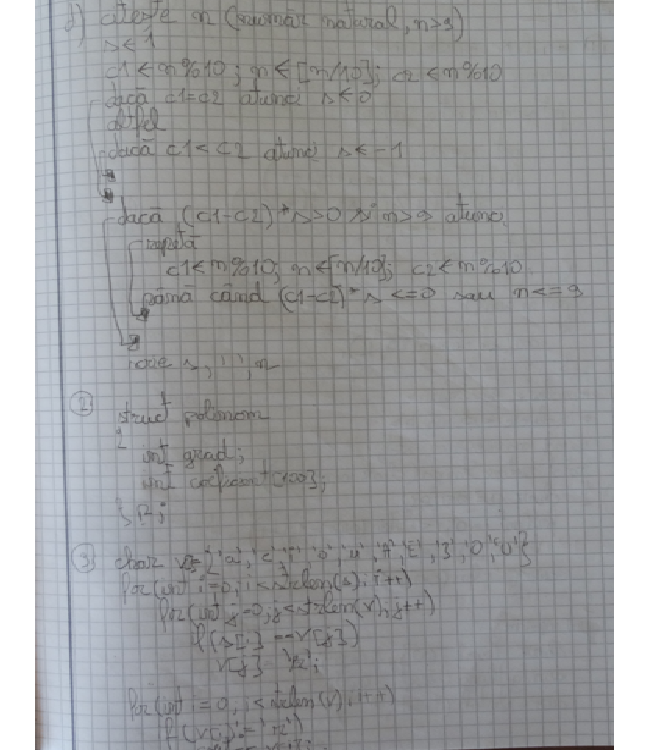 d) citește n (număr natural, n>9)
s←1
c1←n%10; n←[n/10]; c2←n%10
dacă c1=c2 atunci s←0
altfel
dacă c1<c2 atunci s←-1
dacă (c1-c2)*s>0 și n>9 atunci
repetă
c1←n%10; n←[n/10]; c2←n%10
până când (c1-c2)*s<=0 sau n<=9
scrie s,' ',n
2) struct polinom
{
int grad;
int coeficient[100];
}p;
3) char v[]={'a','e','i','o','u','A','E','I','O','U'}
for(int i=0;i<strlen(s);i++)
for(int j=0;j<strlen(v);j++)
if(s[i]==v[j])
v[j]='x';
for(int i=0;i<strlen(v);i++)
if(v[i]!='x')